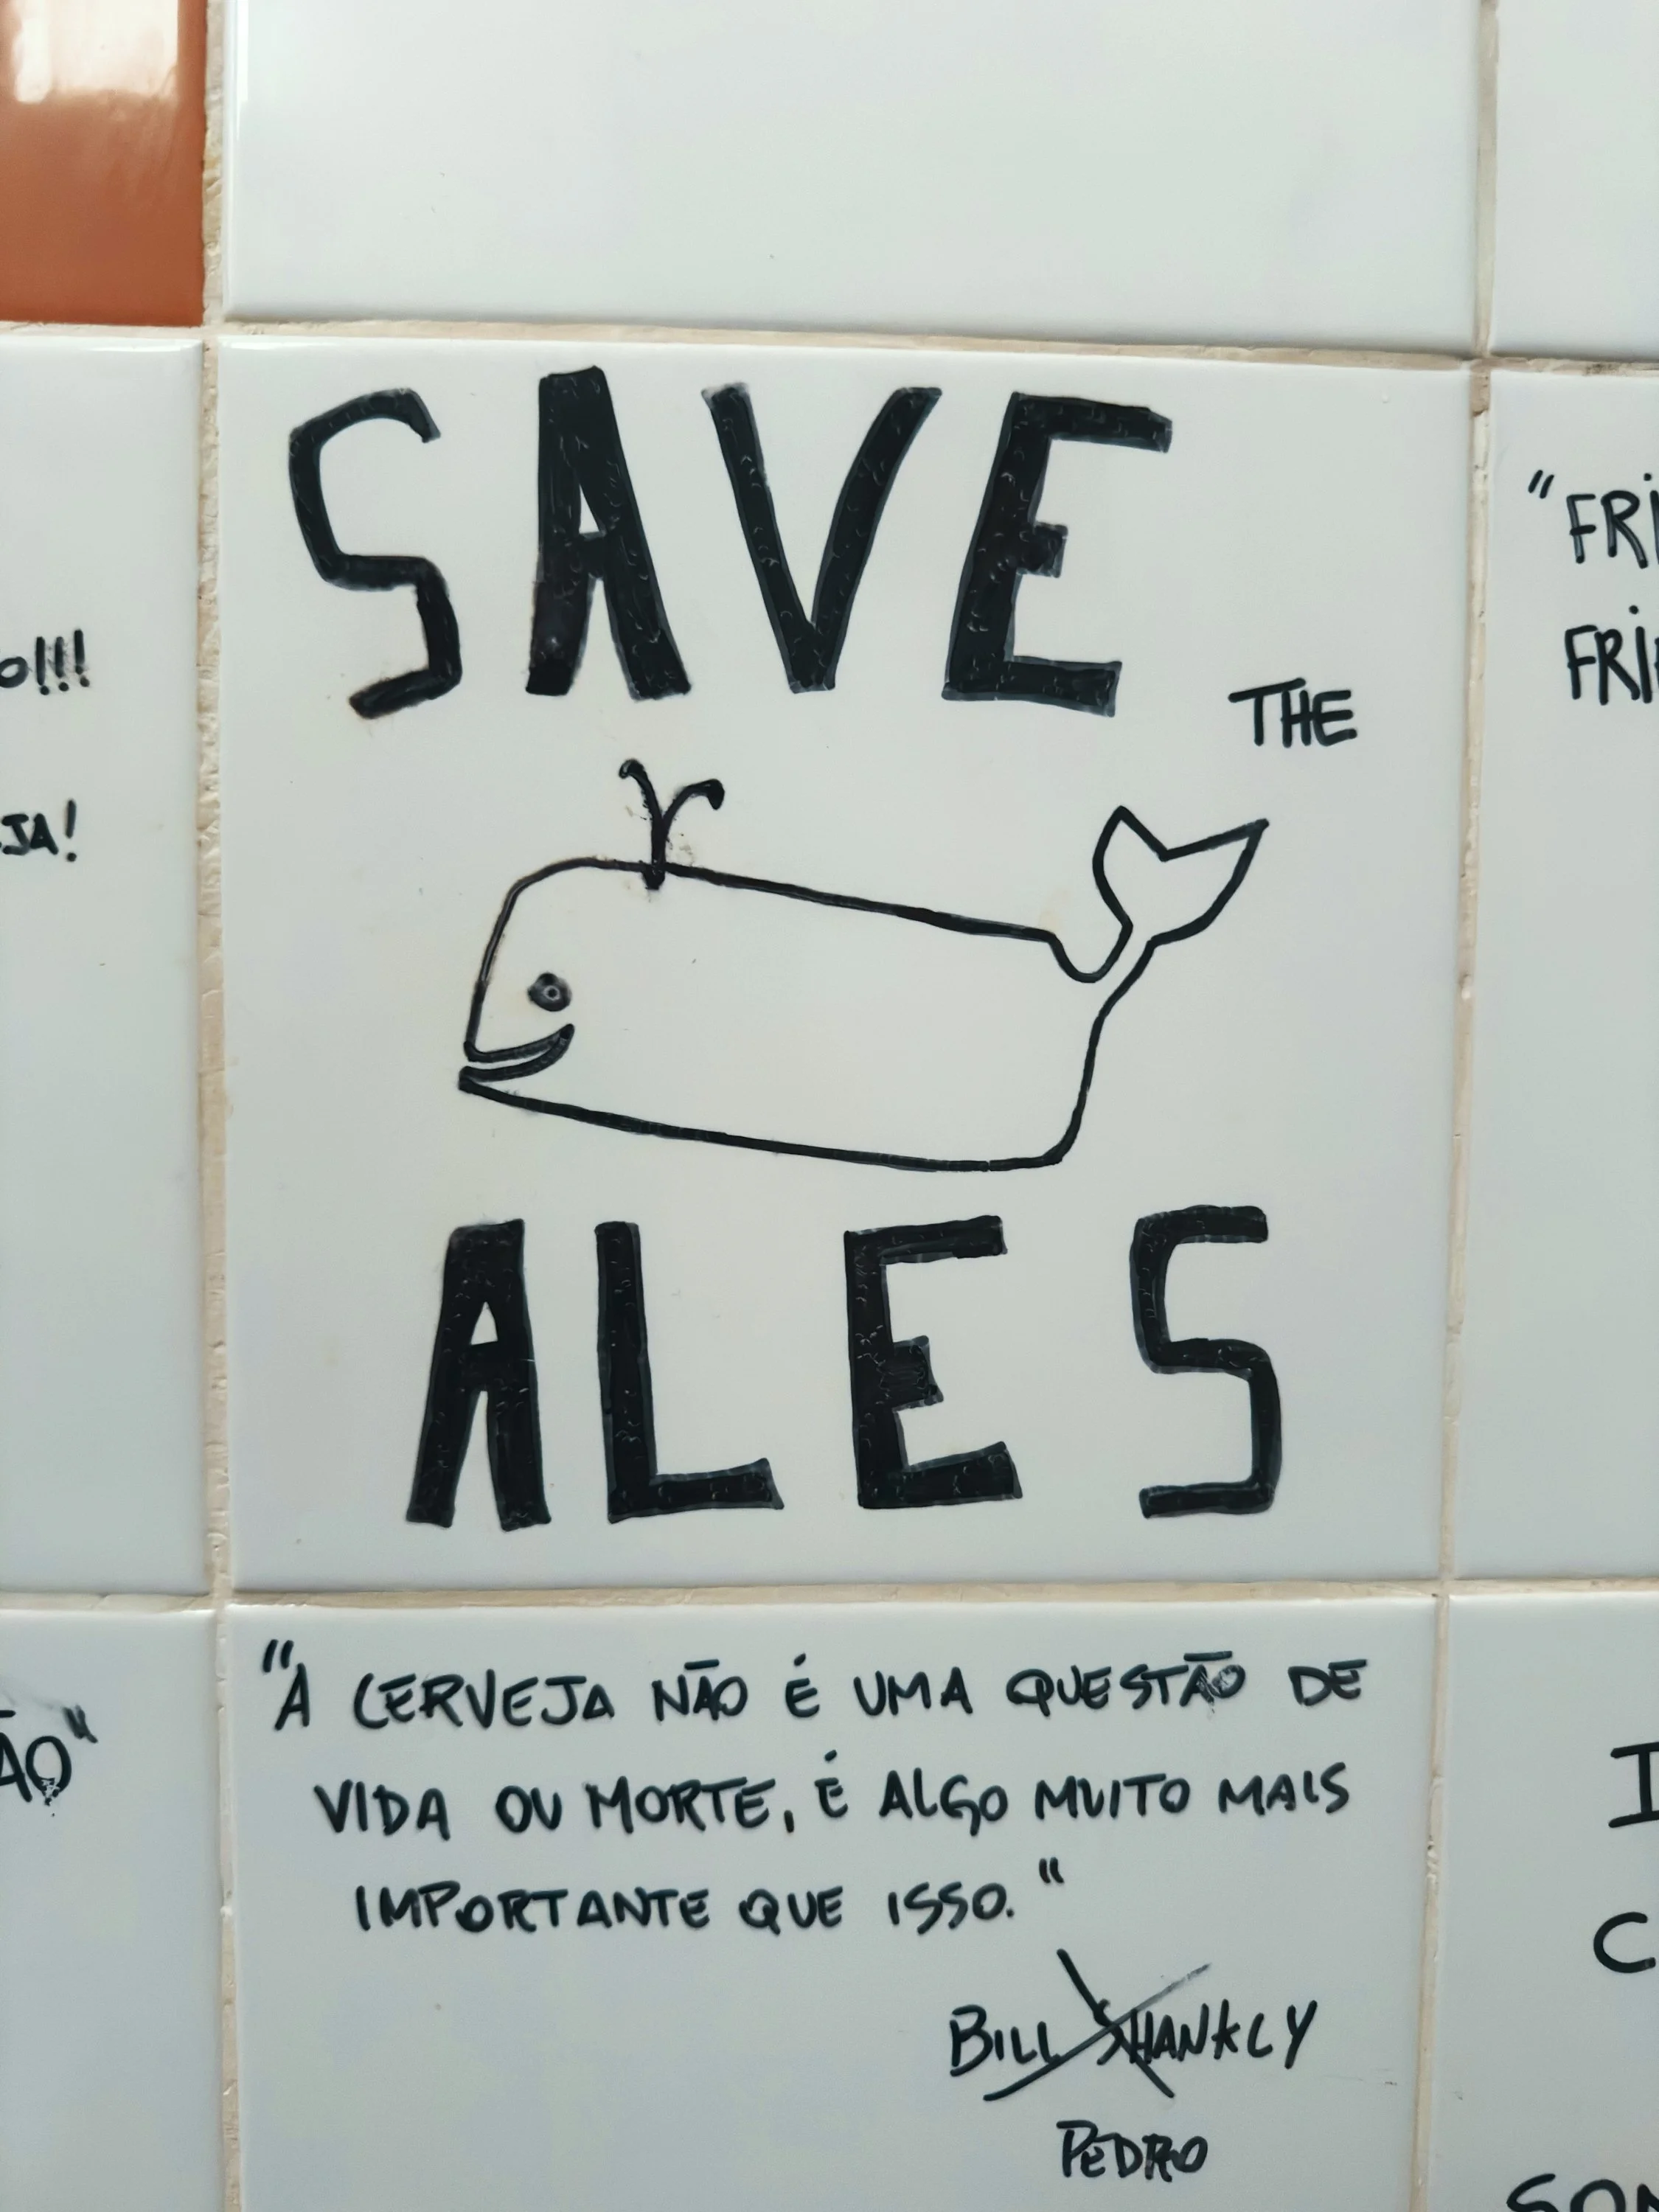 SAVE
THE
ALES
"A CERVEJA NÃO É UMA QUESTÃO DE
VIDA OU MORTE, É ALGO MUITO MAIS
IMPORTANTE QUE ISSO."
BILL SHANKLY
PEDRO